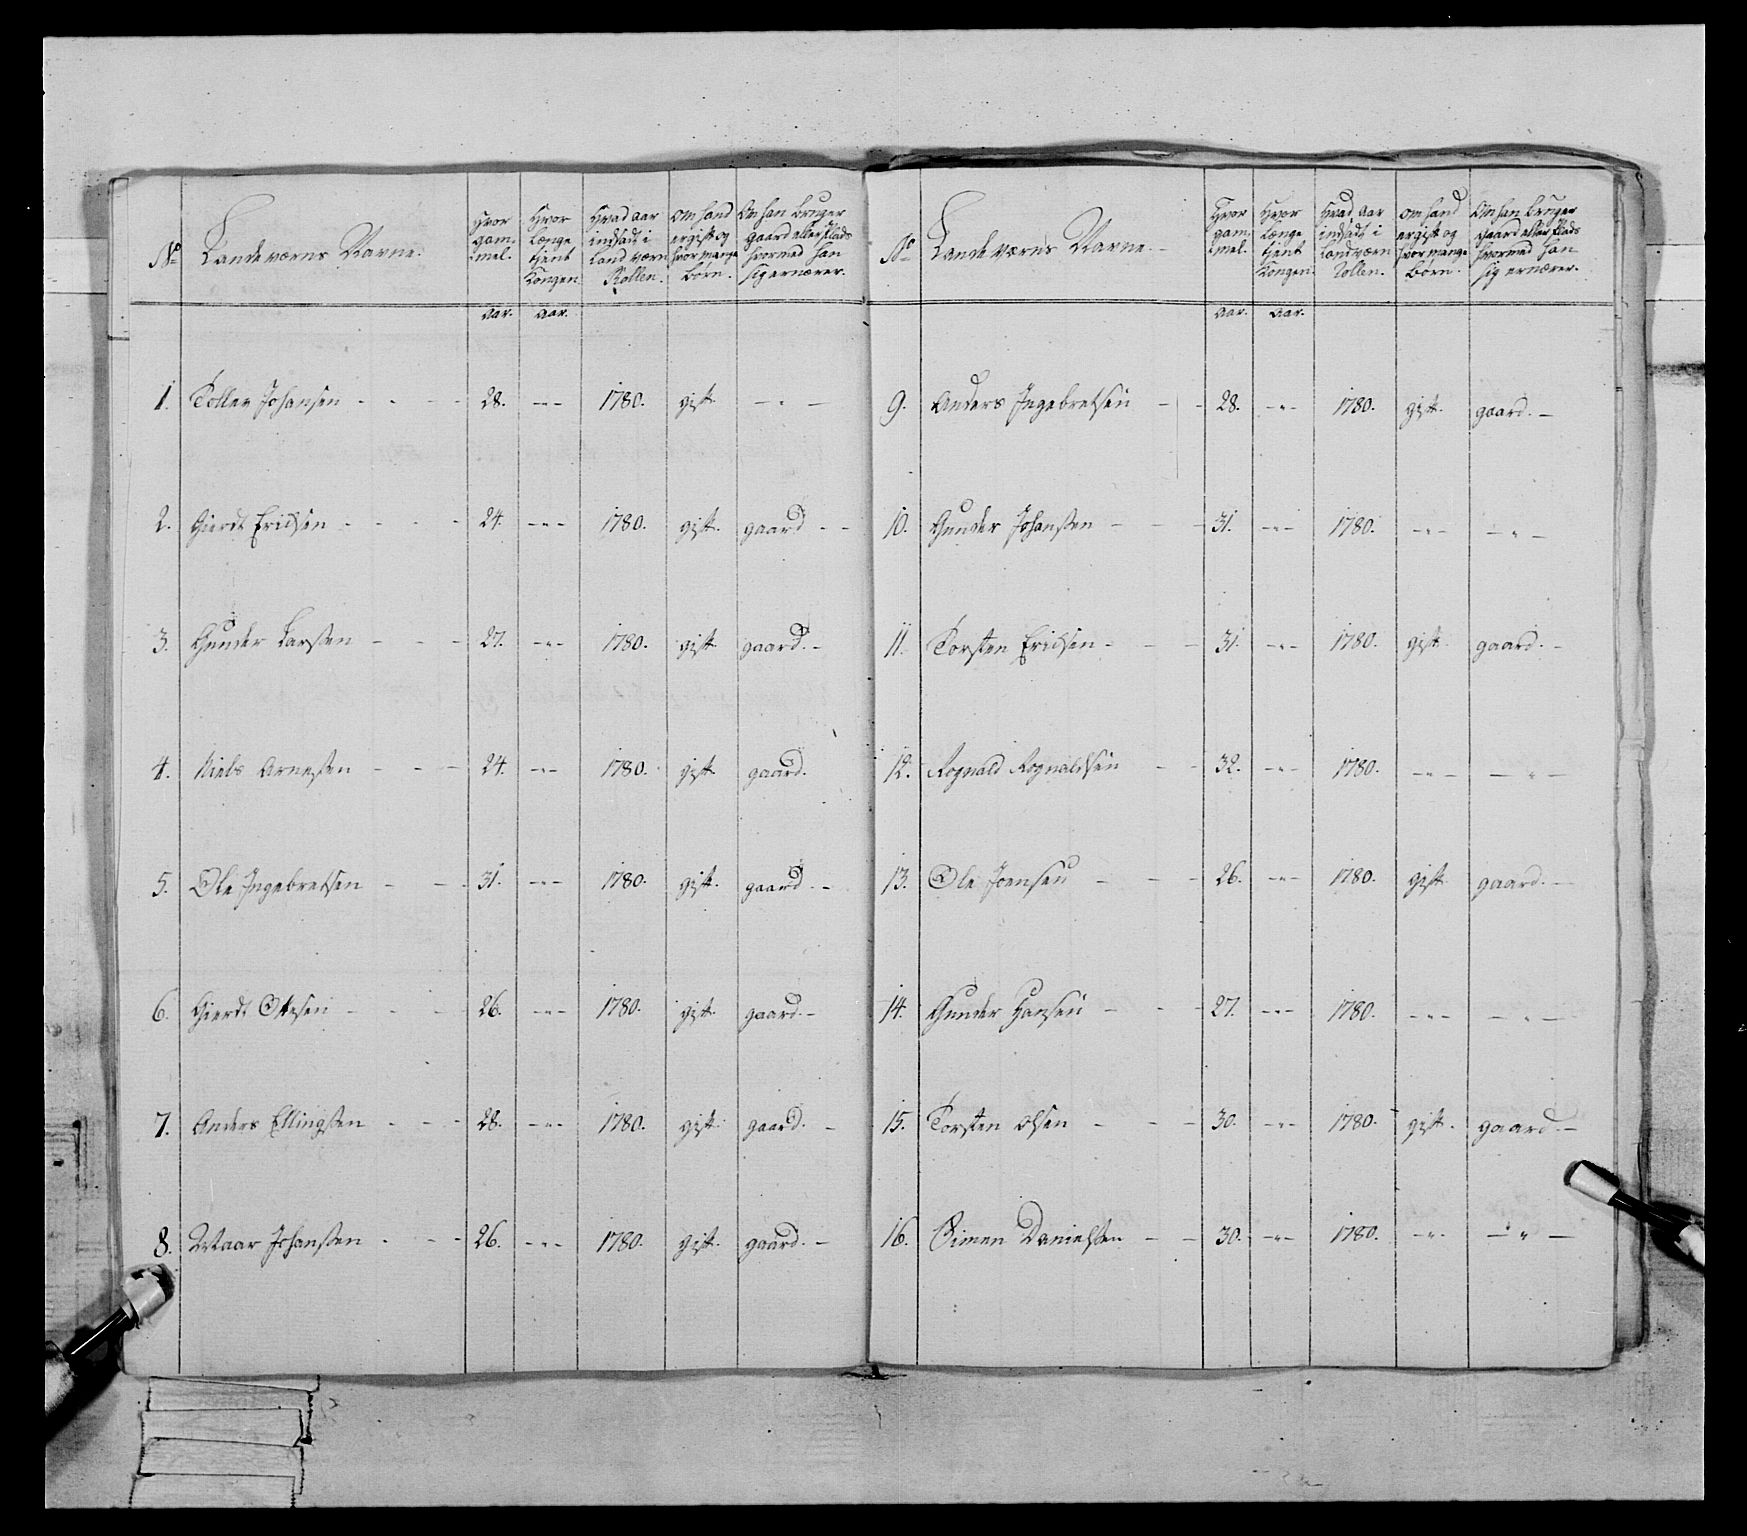 No Landeværns Navne.
Hvor gam- mel.
Hvor længe tient Kongen
Hvad aar indsadt i Land værn Rollen.
om hand er gift og hvor mange børn.
Om han bruger gaard eller Plads hvormed han sig ernærer.
aar. aar.
1. Tollev Johansen - - - 28. -"- 1780. gift. -"-
2. Gierdt Erichsen - - - 24. -"- 1780. gift. gaard - -
3. Gunder Larssen - - - 27. -"- 1780. gift. gaard. -
4. Niels Arnessen - - - 24. -"- 1780. gift. gaard.
5. Ole Ingebretsen - - - 31. -"- 1780. gift. gaard. -
6. Gierdt Ottesen - - - 26. -"- 1780. gift. gaard. -
7. Anders Ellingsen - - - 28. -"- 1780. gift. gaard. -
8. Johanssen - - - 26. -"- 1780. gift. gaard. -
No Landeværns Navne. -
Hvor gam- mel.
Hvor længe tient Kongen.
Hvad aar indsadt i Landværn Rollen.
om hand er gift og hvor mange børn.
Om han bruger Gaard eller Plads hvormed han sig ernærer.
aar. aar.
9. Anders Ingebretsen - - 28. -"- 1780. gift. gaard. -
10. Gunder Johanssen - - - 31. -"- 1780. -"- -"-
11. Torsten Erichsen - - - 31. -"- 1780. gift. gaard. -
12. Rognald Rognaldsen - - 32. -"- 1780. -"- -"-
13. Ole Joensen - - - 26. -"- 1780. gift. gaard. -
14. Gunder Hansen - - - 27. -"- 1780. -"- -"-
15. Torsten Olsen - - - 30. -"- 1780. gift. gaard. -
16. Simen Danielssen - - 30. -"- 1780. -"- -"-